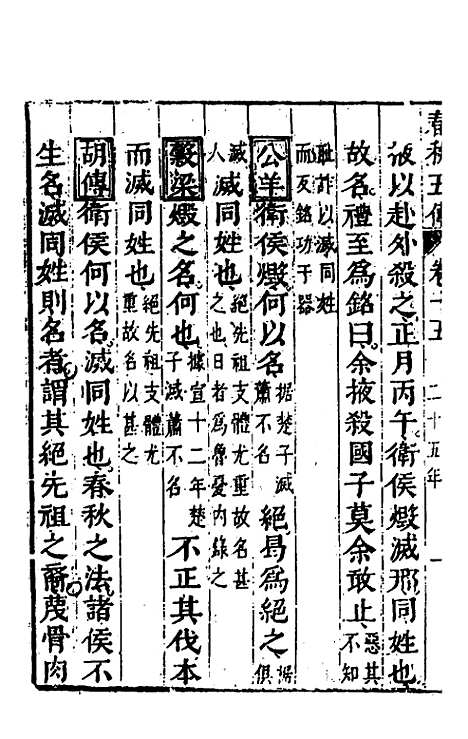 春秋五傳 卷十五 二十五年 一
掖以赴外殺之正月丙午衛侯燬滅邢同姓也
故名禮至爲銘曰余掖殺國子莫余敢止惡其不知
恥詐以滅同姓而反銘功于器
公羊衛侯燬何以名據楚子滅蕭不名絕曷爲絕之據俱
滅人滅同姓也絕先祖支體尤重故名甚之也日者爲魯憂內錄之
穀梁燬之名何也據宣十二年楚子滅蕭不名不正其伐本
而滅同姓也絕先祖支體尤重故名以甚之
胡傳衛侯何以名滅同姓也春秋之法諸侯不
生名滅同姓則名者謂其絕先祖之裔蔑骨肉